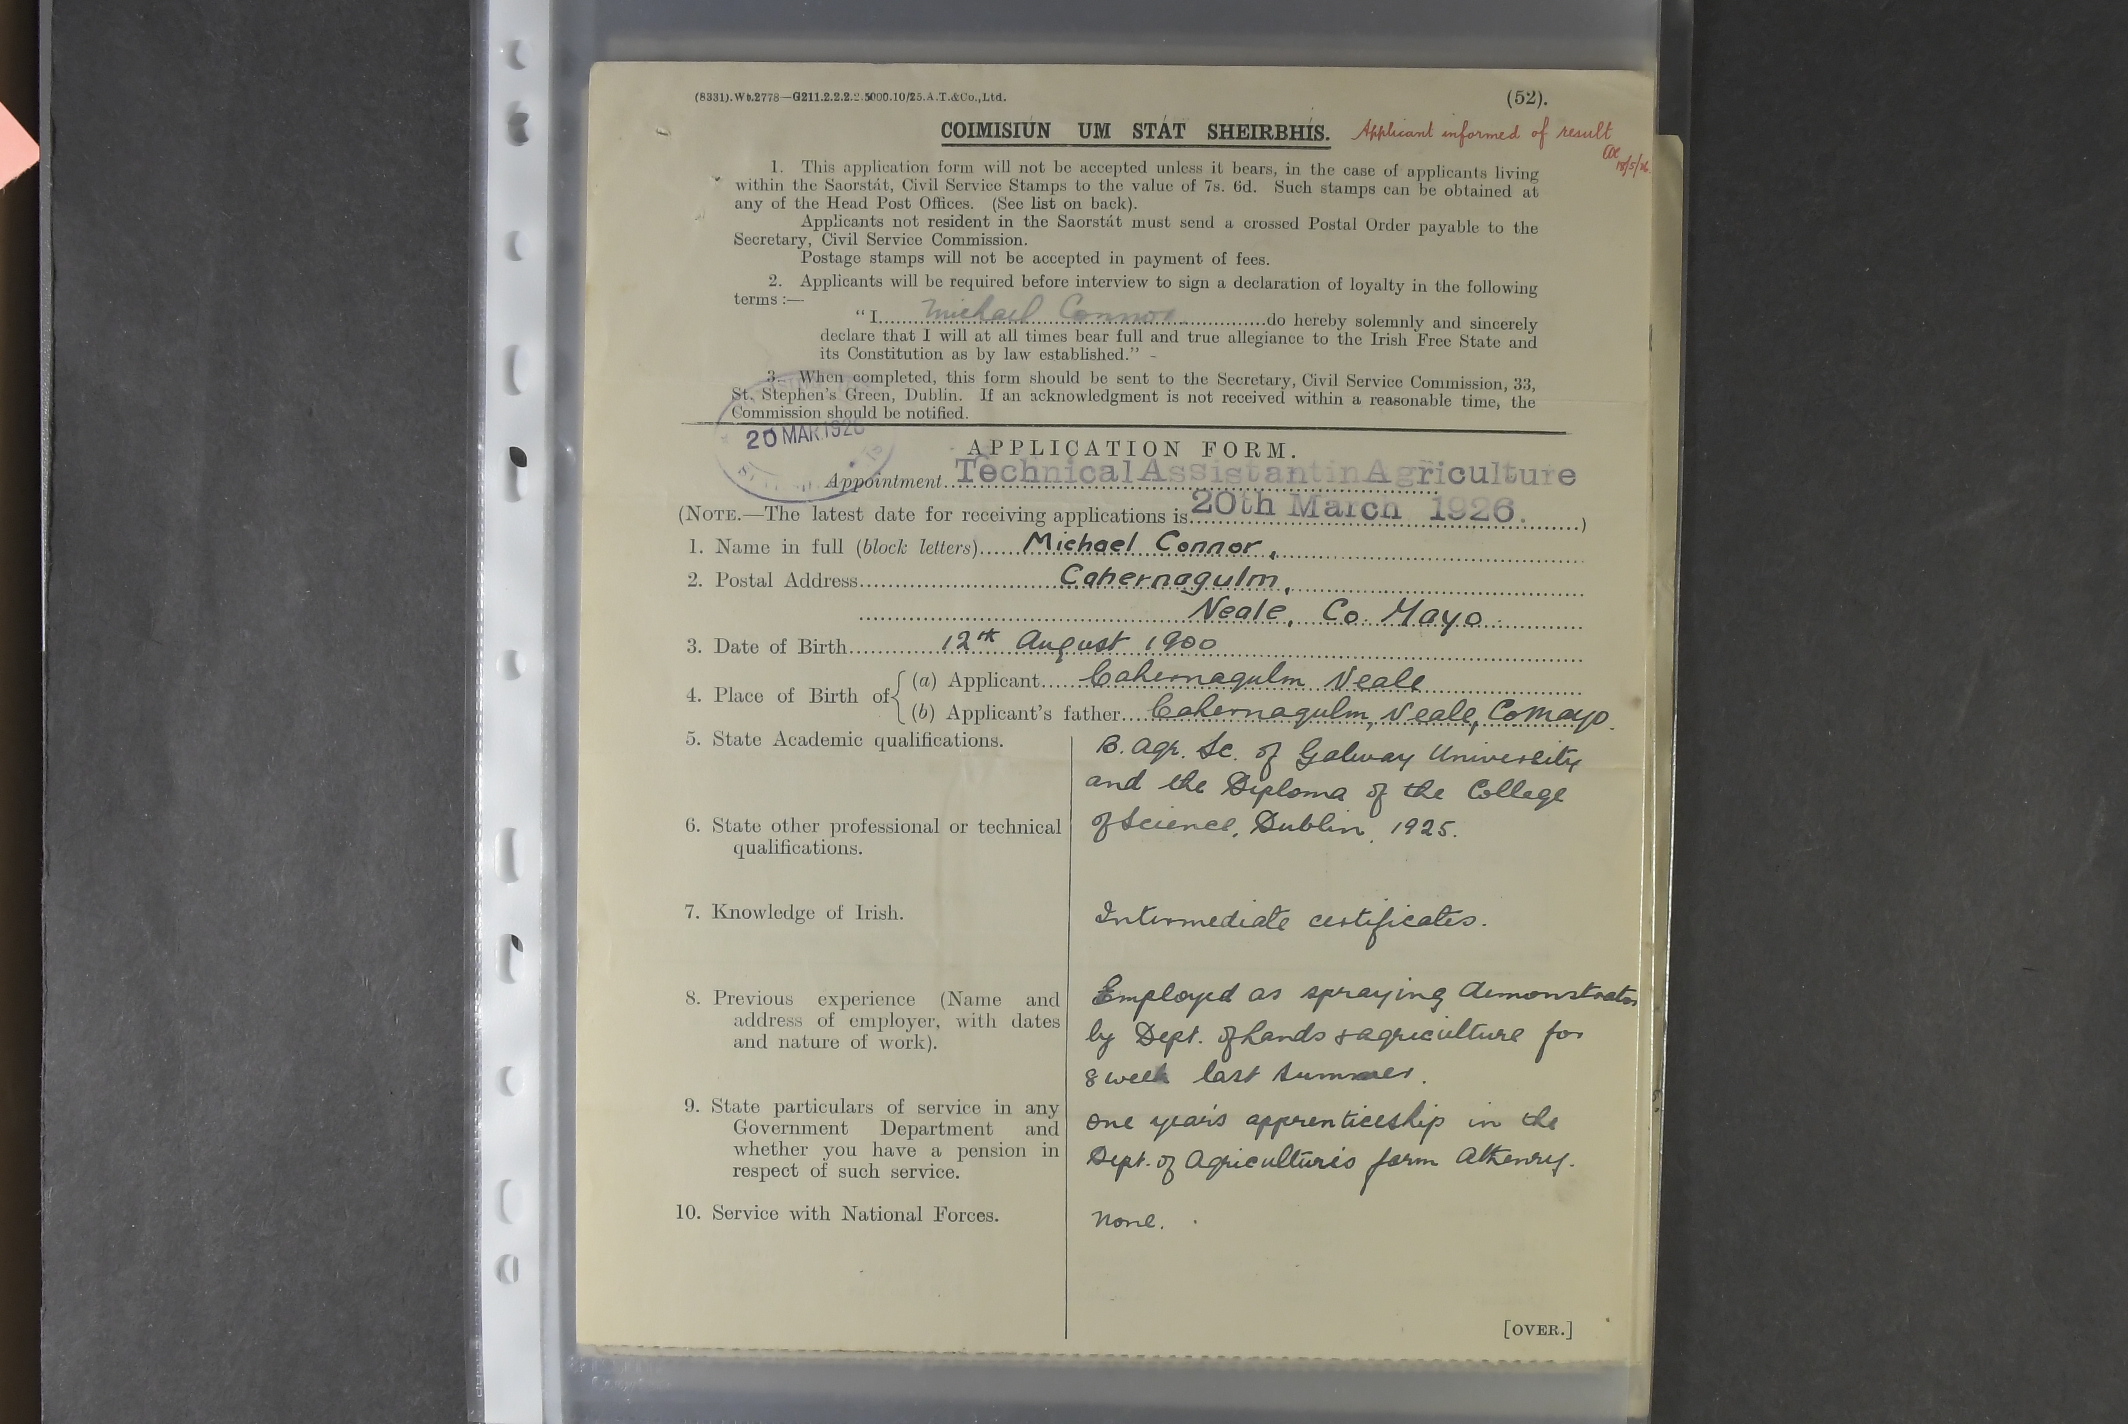 (8331).Wt.2778—G211.2.2.2.2.5000.10/25.A.T.&Co.,Ltd.
(52).
COIMISIÚN UM STÁT SHEIRBHÍS.
Applicant informed of result
18/5/26.
1. This application form will not be accepted unless it bears, in the case of applicants living
within the Saorstát, Civil Service Stamps to the value of 7s. 6d. Such stamps can be obtained at
any of the Head Post Offices. (See list on back).
Applicants not resident in the Saorstát must send a crossed Postal Order payable to the
Secretary, Civil Service Commission.
Postage stamps will not be accepted in payment of fees.
2. Applicants will be required before interview to sign a declaration of loyalty in the following
terms :—
"I Michael Connor do hereby solemnly and sincerely
declare that I will at all times bear full and true allegiance to the Irish Free State and
its Constitution as by law established."
3. When completed, this form should be sent to the Secretary, Civil Service Commission, 33,
St. Stephen's Green, Dublin. If an acknowledgment is not received within a reasonable time, the
Commission should be notified.
20 MAR 1926
APPLICATION FORM.
Appointment Technical Assistant in Agriculture
(NOTE.—The latest date for receiving applications is 20th March 1926.)
1. Name in full (block letters) Michael Connor,
2. Postal Address Cahernagulm,
Neale, Co. Mayo.
3. Date of Birth 12th August 1900
4. Place of Birth of (a) Applicant Cahernagulm Neale
(b) Applicant's father Cahernagulm, Neale, Co Mayo.
5. State Academic qualifications.
B. Agr. Sc. of Galway University
and the Diploma of the College
6. State other professional or technical
qualifications.
of Science, Dublin, 1925.
7. Knowledge of Irish.
Intermediate certificates.
8. Previous experience (Name and
address of employer, with dates
and nature of work).
Employed as spraying demonstrator
by Dept. of Lands & agriculture for
8 week last summer.
9. State particulars of service in any
Government Department and
whether you have a pension in
respect of such service.
One year's apprenticeship in the
Dept. of Agriculture's farm Athenry.
10. Service with National Forces.
None.
[OVER.]